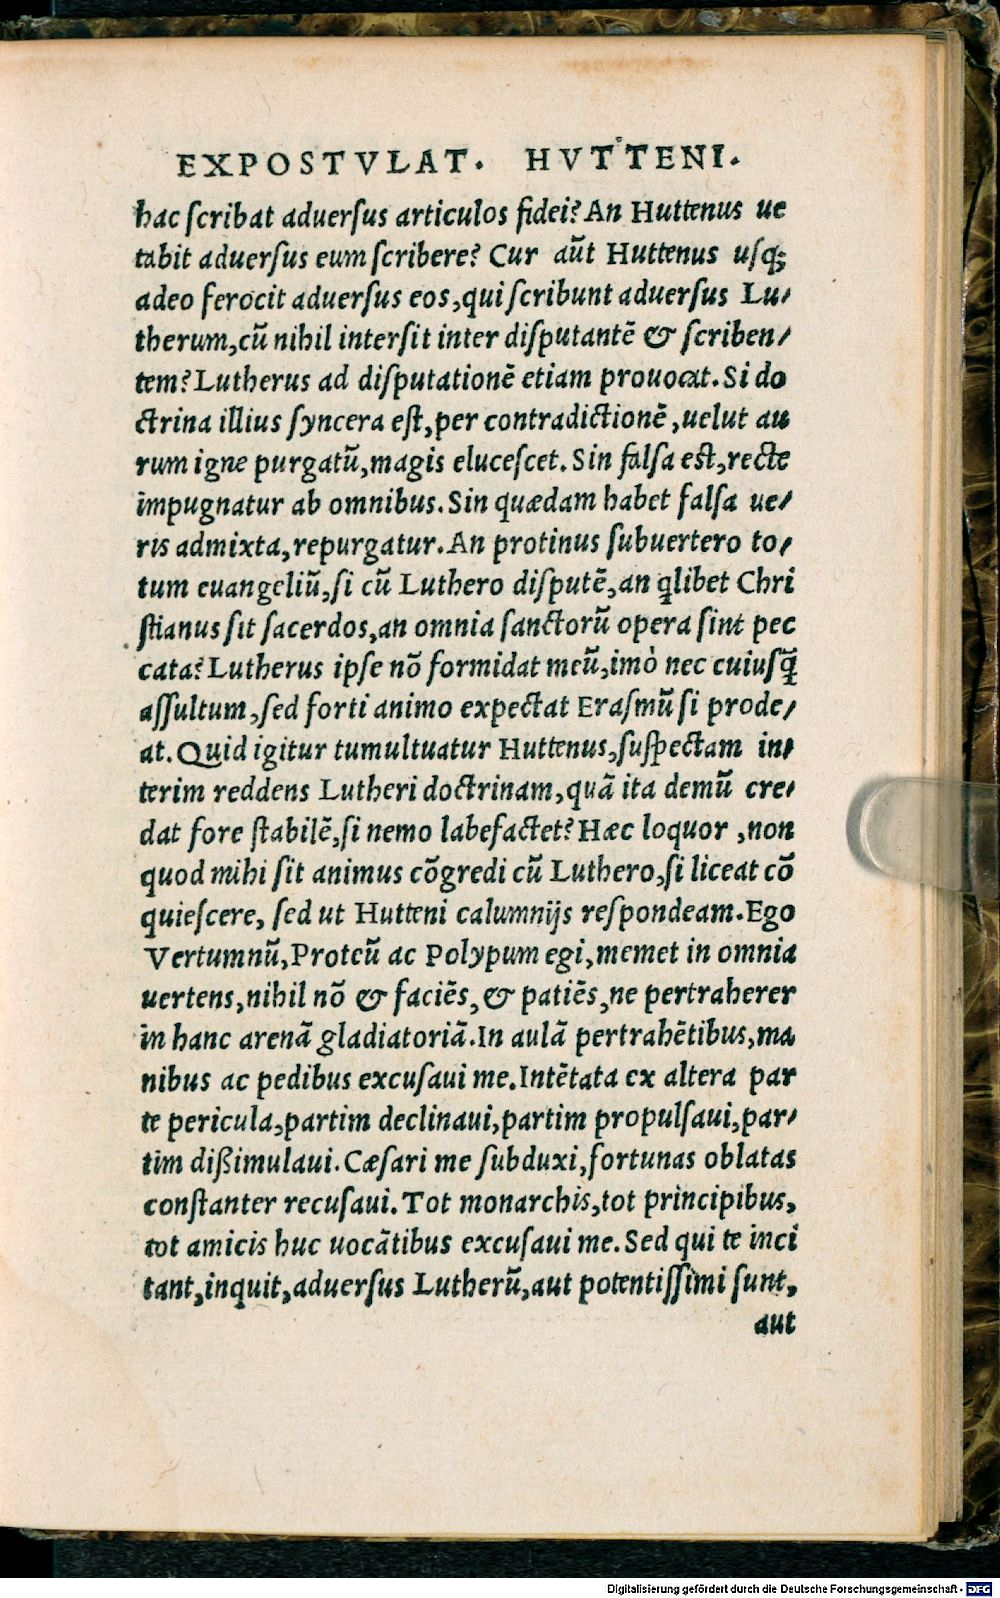 EXPOSTVLAT. HVTTENI.
hac ſcribat aduerſus articulos fidei? An Huttenus ue
tabit aduerſus eum ſcribere? Cur aūt Huttenus uſq;
adeo ferocit aduerſus eos, qui ſcribunt aduerſus Lu/
therum, cū nihil interſit inter diſputantē & ſcriben/
tem? Lutherus ad diſputationē etiam prouocat. Si do
ctrina illius ſyncera eſt, per contradictionē, uelut au
rum igne purgatū, magis eluceſcet. Sin falſa eſt, recte
impugnatur ab omnibus. Sin quædam habet falſa ue/
ris admixta, repurgatur. An protinus ſubuertero to/
tum euangeliū, ſi cū Luthero diſputē, an qlibet Chri
ſtianus ſit ſacerdos, an omnia ſanctorū opera ſint pec
cata? Lutherus ipſe nō formidat meū, imò nec cuiuſq̃
aſſultum, ſed forti animo expectat Eraſmū ſi prode/
at. Quid igitur tumultuatur Huttenus, ſuſpectam in/
terim reddens Lutheri doctrinam, quā ita demū cre/
dat fore ſtabilē, ſi nemo labefactet? Hæc loquor, non
quod mihi ſit animus cōgredi cū Luthero, ſi liceat cō
quieſcere, ſed ut Hutteni calumnijs reſpondeam. Ego
Vertumnū, Proteū ac Polypum egi, memet in omnia
uertens, nihil nō & faciēs, & patiēs, ne pertraherer
in hanc arenā gladiatoriā. In aulā pertrahētibus, ma
nibus ac pedibus excuſaui me. Intētata ex altera par
te pericula, partim declinaui, partim propulſaui, par/
tim dißimulaui. Cæſari me ſubduxi, fortunas oblatas
conſtanter recuſaui. Tot monarchis, tot principibus,
tot amicis huc uocātibus excuſaui me. Sed qui te inci
tant, inquit, aduerſus Lutherū, aut potentiſſimi ſunt,
aut
Digitalisierung gefördert durch die Deutsche Forschungsgemeinschaft - DFG